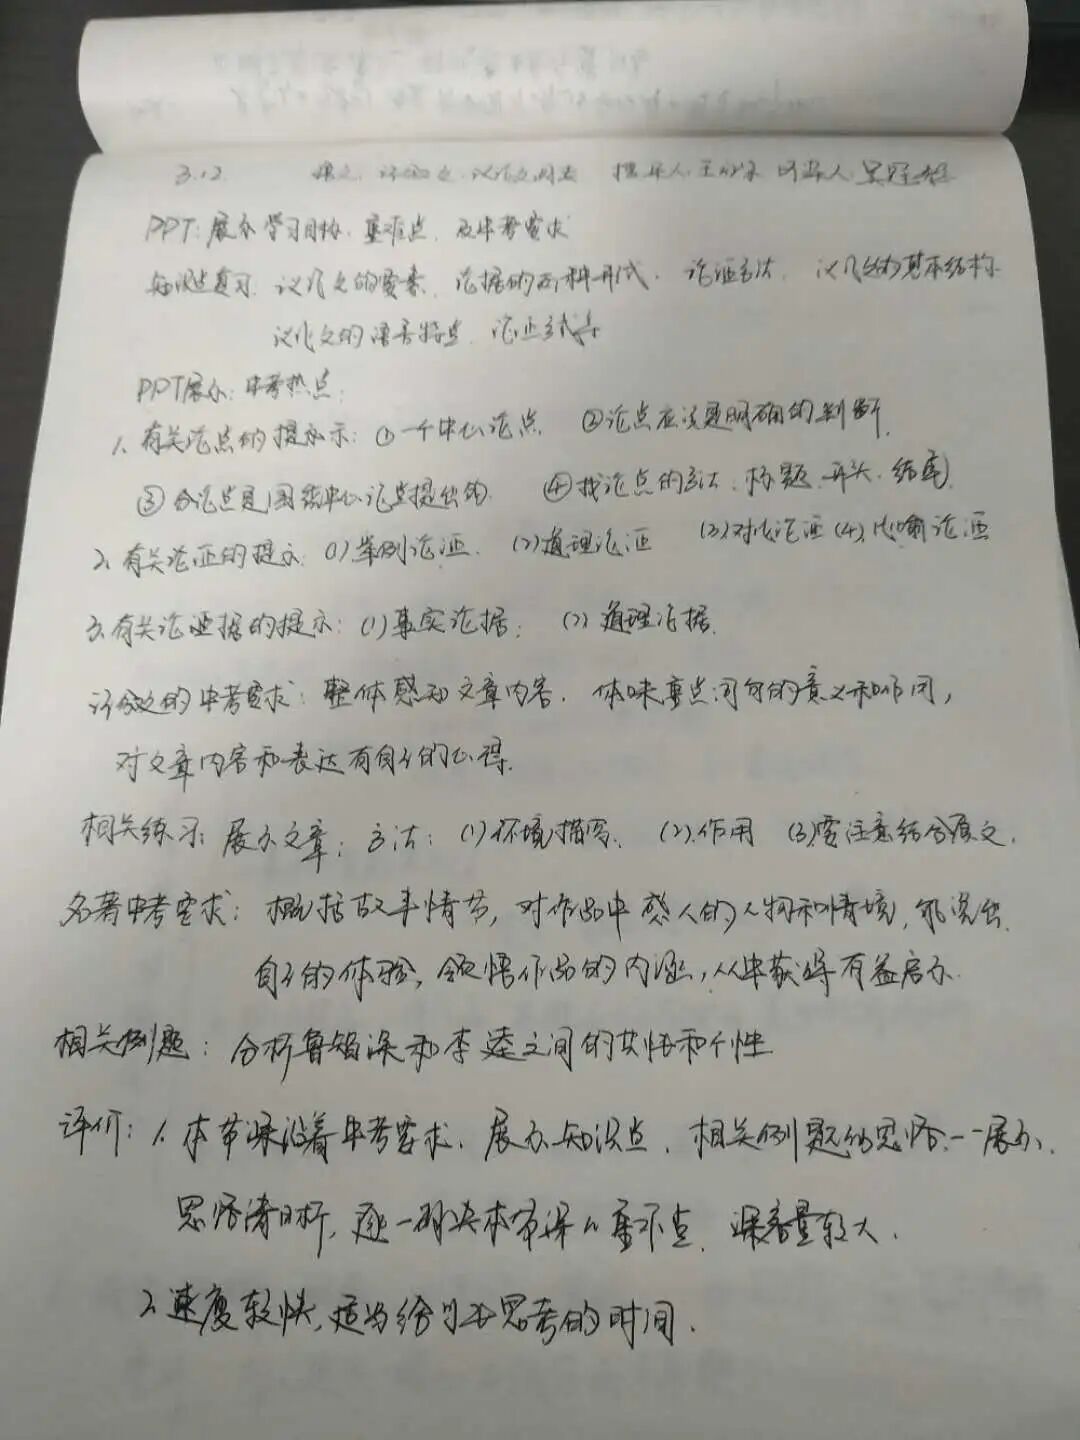 3.12 课文 记叙文、议论文阅读 授课人 王 听课人
PPT:展示学习目标、重难点、及中考要求
知识点复习 议论文的要素、论据的两种形式、论证方法、议论文的基本结构
议论文的语言特点、论证方式等
PPT展示:中考热点:
1、有关论点的提示:①一个中心论点 ②论点应该是明确的判断
③分论点是围绕中心论点提出的 ④找论点的方法:标题、开头、结尾
2、有关论证的提示:(1)举例论证 (2)道理论证 (3)对比论证 (4)比喻论证
3、有关论证据的提示:(1)事实论据; (2)道理论据.
记叙文的中考要求:整体感知文章内容.体味重点词句的意义和作用,
对文章内容和表达有自己的心得.
相关练习:展示文章;方法:(1)环境描写、(2)作用 (3)要注意结合原文.
名著中考要求:概括故事情节,对作品中感人的人物和情境,能说出
自己的体验,领悟作品的内涵,从中获得有益启示.
相关例题:分析鲁智深和李逵之间的共性和个性
评价:1、本节课沿着中考要求、展示知识点、相关例题的思路一一展示.
思路清晰,逐一解决本节课的重难点.课容量较大.
2、速度较快,适当给学生思考的时间.